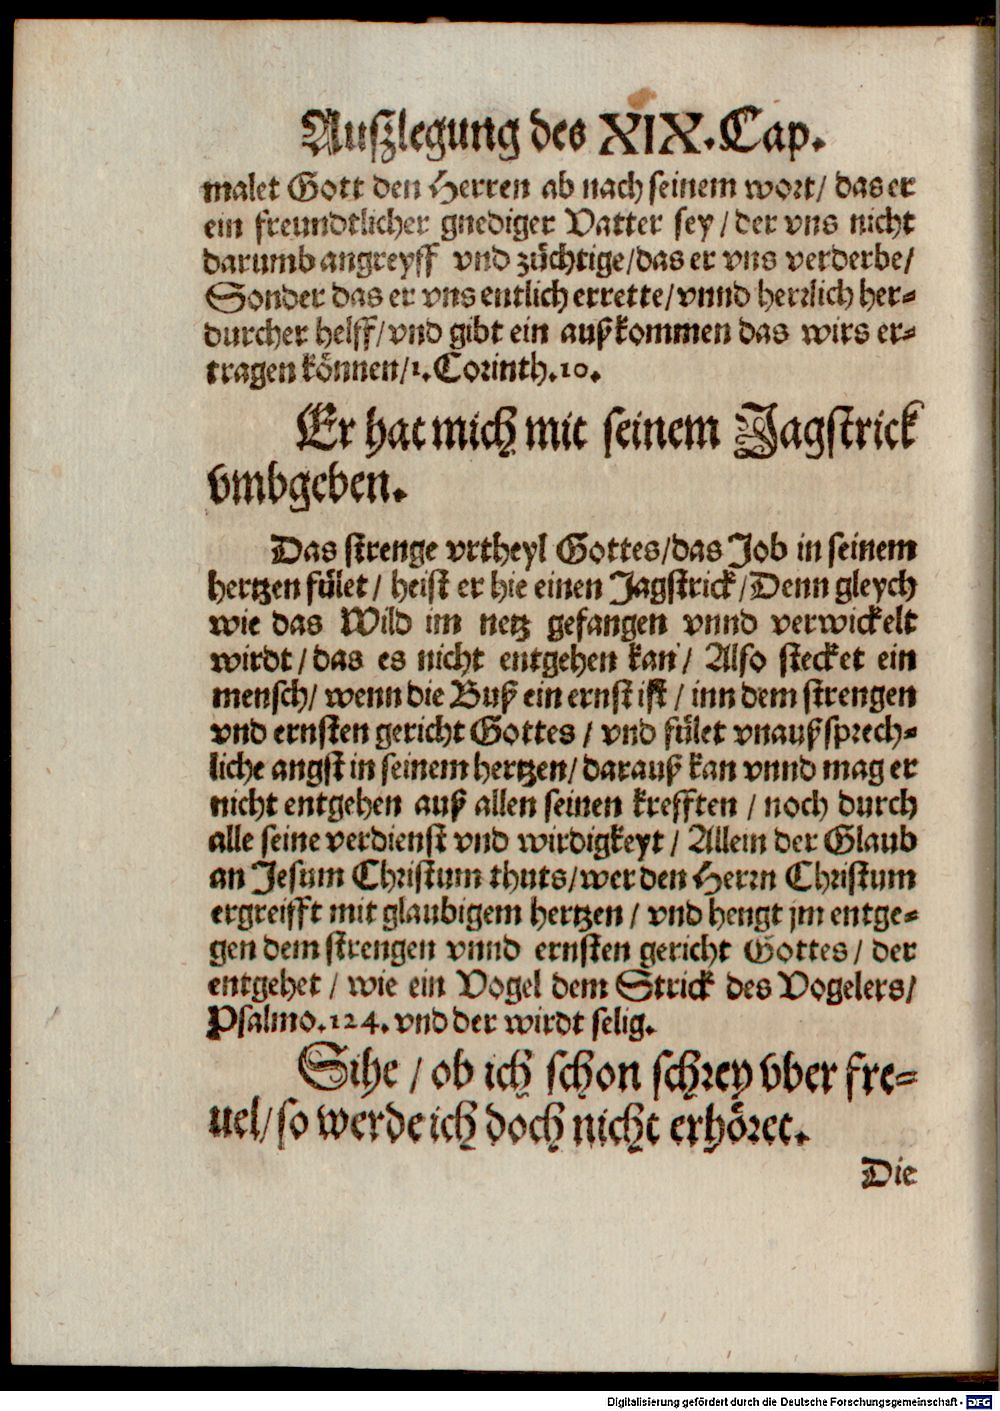 Auszlegung des XIX. Cap.
malet Gott den Herren ab nach seinem wort/ das er
ein freundtlicher gnediger Vatter sey/ der vns nicht
darumb angreyff vnd züchtige/das er vns verderbe/
Sonder das er vns entlich errette/vnnd herrlich her-
durcher helff/vnd gibt ein außkommen das wirs er-
tragen können/1. Corinth. 10.
Er hat mich mit seinem Jagstrick
vmbgeben.
Das strenge vrtheyl Gottes/das Job in seinem
hertzen fület/ heist er hie einen Jagstrick/Denn gleych
wie das Wild im netz gefangen vnnd verwickelt
wirdt/ das es nicht entgehen kan/ Also stecket ein
mensch/ wenn die Buß ein ernst ist/ inn dem strengen
vnd ernsten gericht Gottes/ vnd fület vnaußsprech-
liche angst in seinem hertzen/ darauß kan vnnd mag er
nicht entgehen auß allen seinen krefften/ noch durch
alle seine verdienst vnd wirdigkeyt/ Allein der Glaub
an Jesum Christum thuts/wer den Herrn Christum
ergreifft mit glaubigem hertzen/ vnd hengt jm entge-
gen dem strengen vnnd ernsten gericht Gottes/ der
entgehet/ wie ein Vogel dem Strick des Vogelers/
Psalmo. 124. vnd der wirdt selig.
Sihe/ ob ich schon schrey vber fre-
uel/so werde ich doch nicht erhöret.
Die
Digitalisierung gefördert durch die Deutsche Forschungsgemeinschaft - DFG